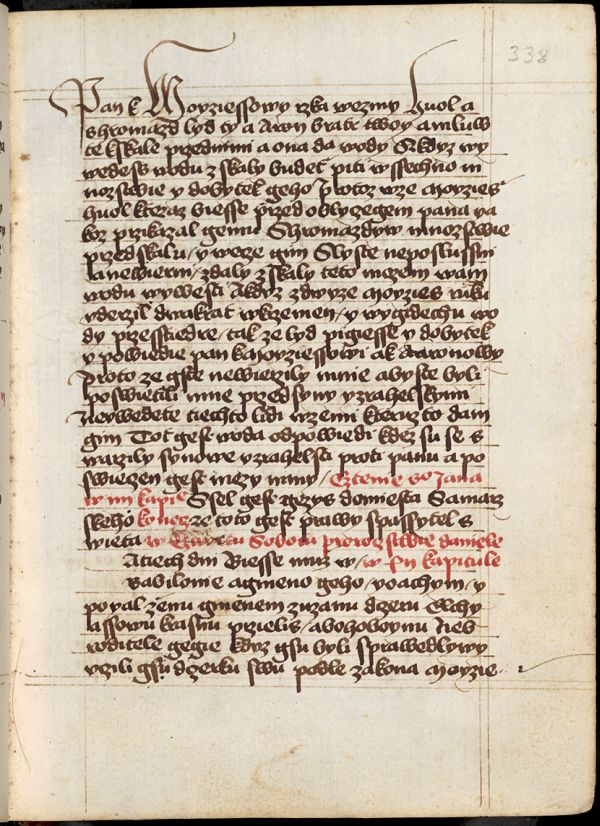 338
Pan k Moyziessowy rzka wezmy huol a
shromazd lyd ty a Aron bratr twoy a mluw
te k skale przed nimi a ona da wody A kdyz wy
wedess wodu z skaly budet piti wssechno m
nozstwie y dobytek geho Protoz wze Moyzies
huol kteraz biesse przed oblyczegem pana ya
koz przikazal gemu Shromazdyw mnozstwie
przed skalu / y wece gim Slyste neposlussni
a newierni / zdaly z skaly teto mozem wam
wodu wywesti A kdyz zdwyze Moyzies ruku
uderzil dwakrat w krzemen / y wygidechu wo
dy przesstiedre / tak ze lyd pigiesse y dobytek
y powiedie pan k Moyziessowi a k Aaronowy
Proto ze gste newierzily mnie abyste byli
poswietili mne przed syny yzrahelskymi
Neuwedete tiechto lidi w zemi kteruz to dam
gim Tot gest woda odpowiedi kdez su se s
warzily synowe yzrahelsti proti panu a po
swiecen gest mezy nimy / Cztenie sº Jana
w iiii kapiº Ssel gest gezys do miesta Samarz
skeho konecz ze toto gest prawy spassytel s
wieta w Cztwrtu Sobotu proroczstwie daniele
A tiech dni Biesse muz w / w xiii kapitule
babilonie a gmeno geho / yoachym / y
poyal zenu gmenem zuzanu dceru Elchy
assowu krasnu przielis / a bohoboynu Neb
roditele gegie kdyz gsu byli sprawedlywy
uczili gsu dcerku swu podle zakona Moyzie